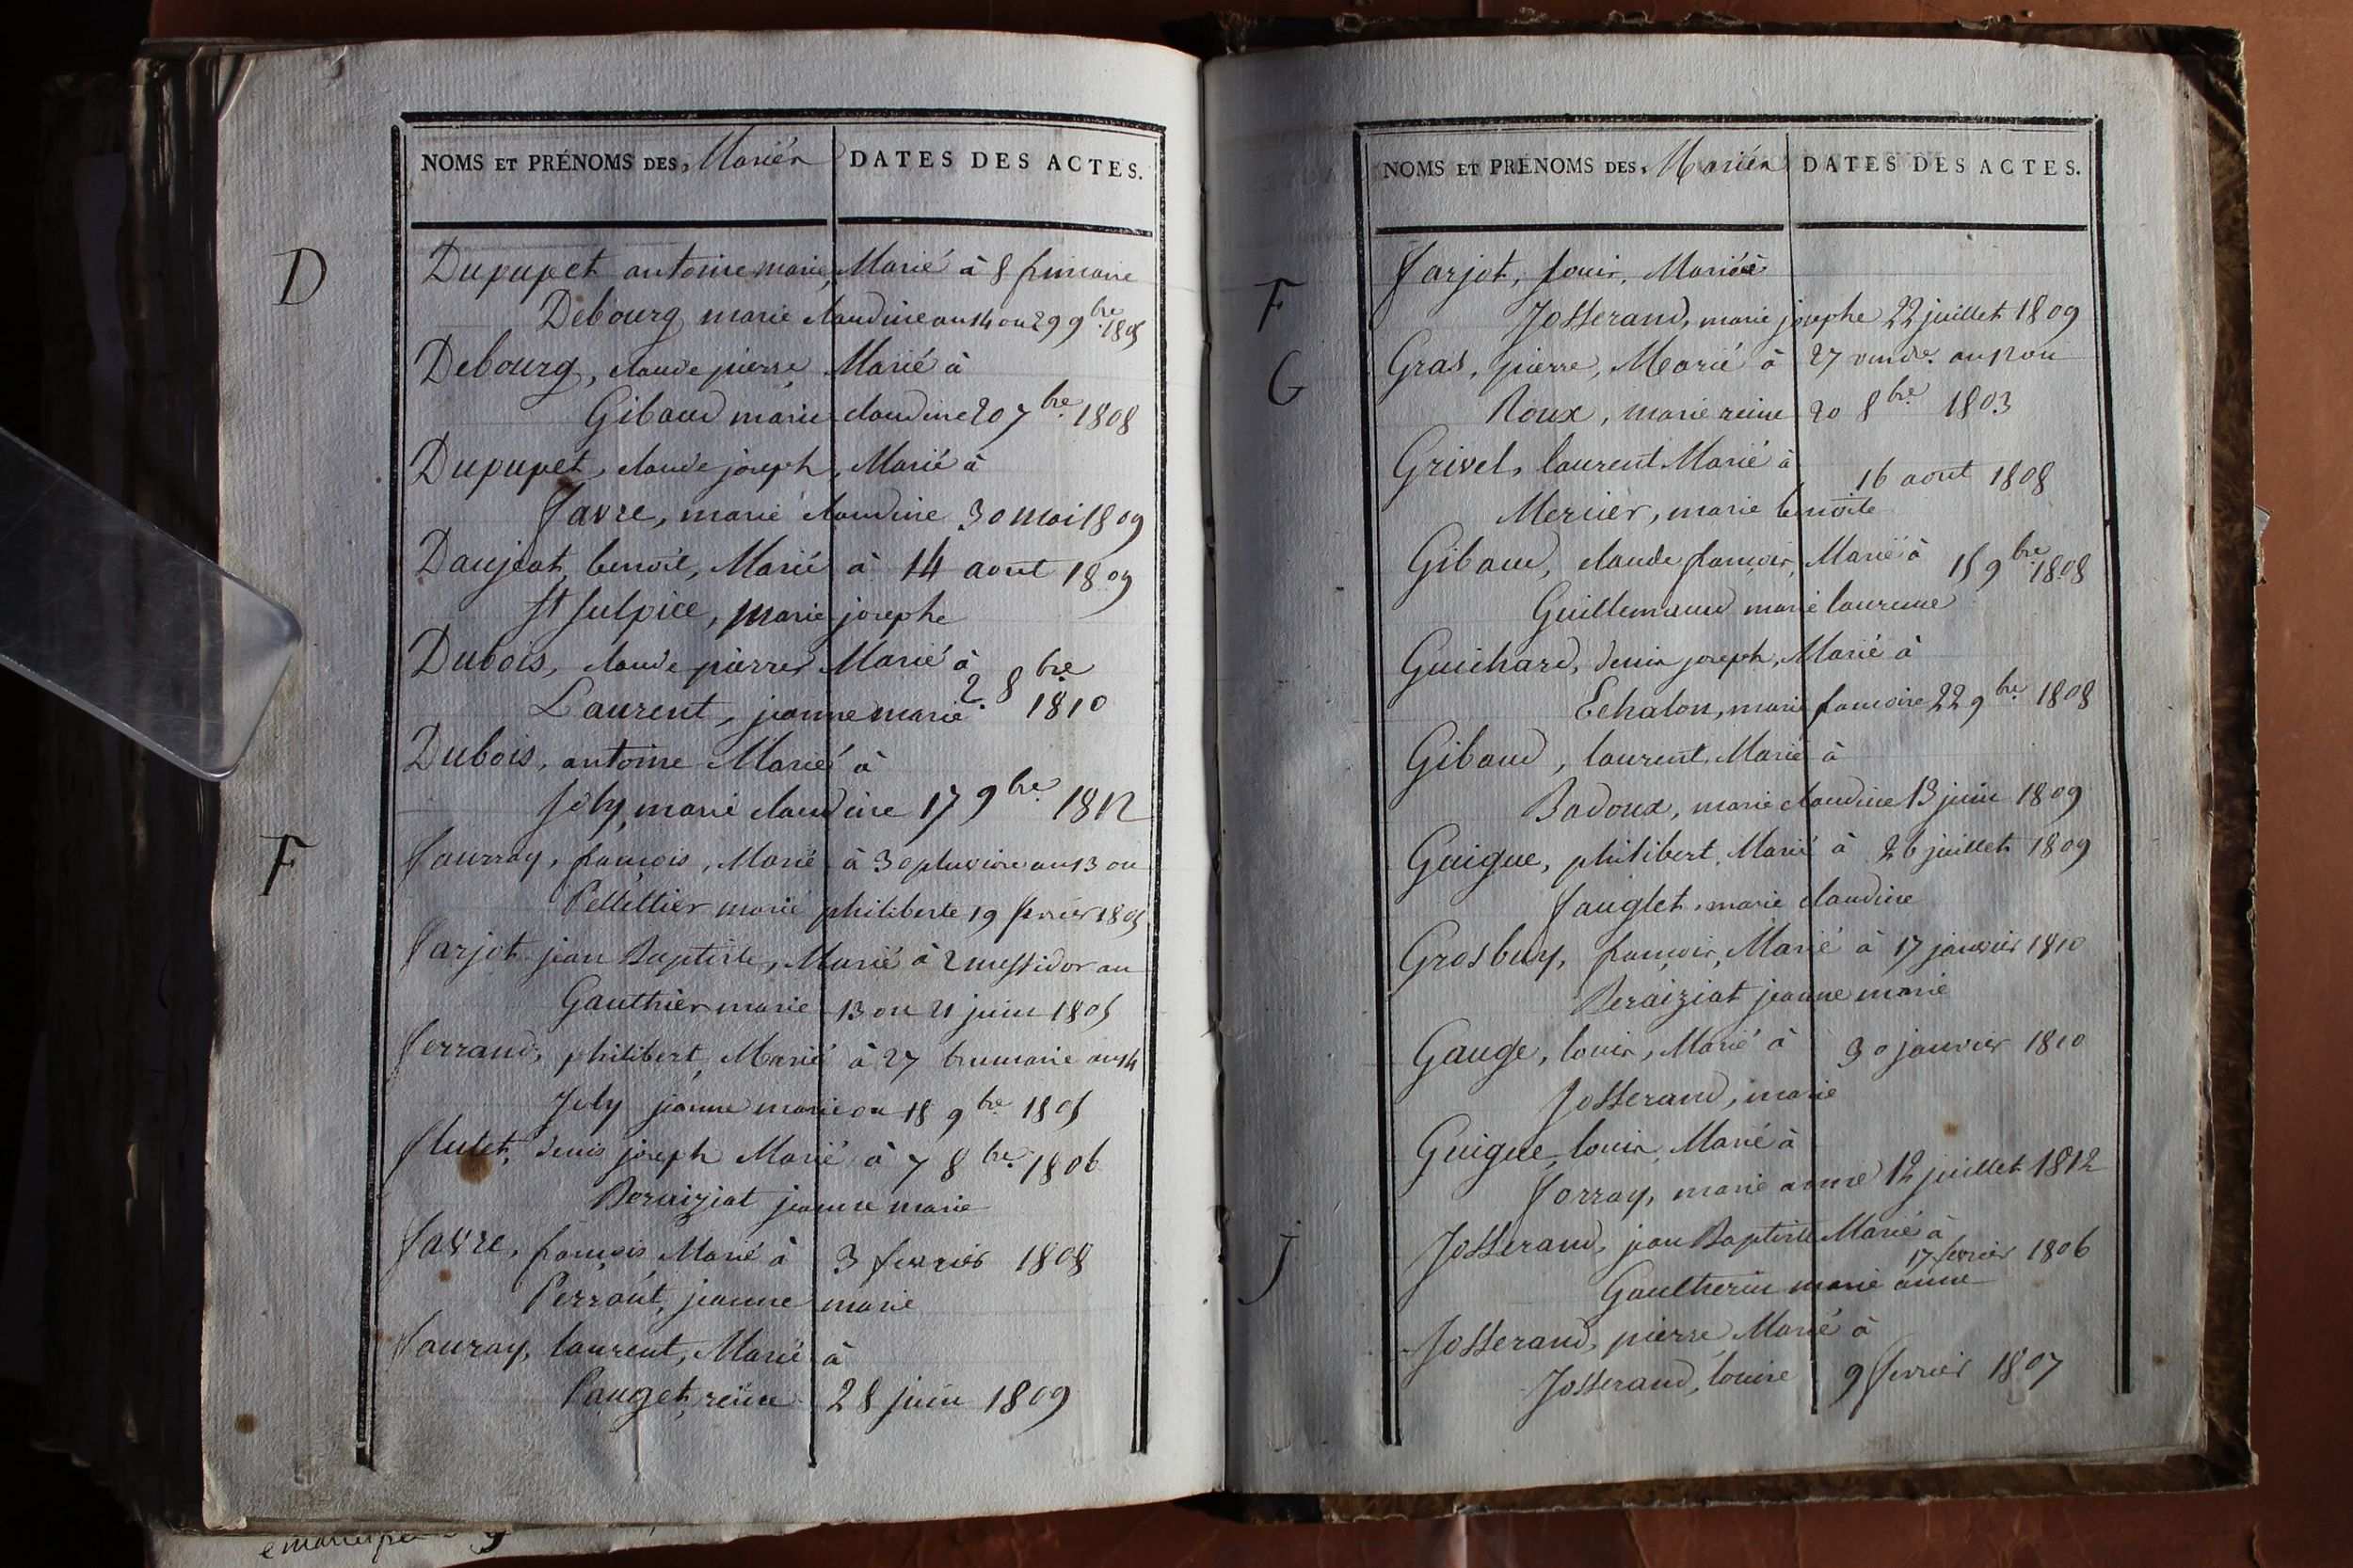 NOMS ET PRÉNOMS DES Mariés DATES DES ACTES.
D
Dupupet antoine marie, Marié à 8 frimaire
Debourg marie claudine an 14 ou 29 9bre 1805
Debourg, claude pierre Marié à
Gibaud marie claudine 20 7bre 1808
Dupupet, claude joseph, Marié à
favre, marie claudine 30 mai 1809
Daujeat benoît, Marié à 14 aout 1809
St Sulpice, marie josephe
Dubois, claude pierre Marié à
2 8bre
Laurent, jeanne marie 1810
Dubois, antoine Marié à
Joly, marie claudine 17 9bre 1812
F
faurray, françois, Marié à 30 pluviose an 13 ou
Pellettier marie philiberte 19 fevrier 1805
farjot jean Baptiste, Marié à 2 messidor an
Gauthier marie 13 ou 21 juin 1805
ferrand, philibert, Marié à 27 brumaire an 14
Joly jeanne marie ou 18 9bre 1805
flutet, denis joseph Marié à 7 8bre 1806
Beraiziat jeanne marie
favre, françois Marié à 3 fevrier 1808
Perraut, jeanne marie
fauray, laurent, Marié à
Pauget, reine 28 juin 1809
NOMS ET PRÉNOMS DES Mariés DATES DES ACTES.
F
farjot, louis, Marié à
Josserand, marie josephe 22 juillet 1809
G
Gras, pierre, Marié à 27 vendre. an 12 ou
Roux, marie reine 20 8bre 1803
Grivel, laurent Marié à
16 aout 1808
Mercier, marie benoite
Gibaud, claude françois, Marié à 15 9bre 1808
Guillemaud marie laurence
Guichard, denis joseph, Marié à
Echalon, marie françoise 22 9bre 1808
Gibaud, laurent, Marié à
Badoux, marie claudine 13 juin 1809
Guigue, philibert, Marié à 26 juillet 1809
fauglet, marie claudine
Grosbuy, françois, Marié à 17 janvier 1810
Beraiziat jeanne marie
Gauge, louis, Marié à 30 janvier 1810
Josserand, marie
Guigue, louis, Marié à
forray, marie anne 12 juillet 1812
J
Josserand, jean Baptiste Marié à
17 fevrier 1806
Gaultherin marie anne
Josserand, pierre Marié à
Josserand, louise 9 fevrier 1807